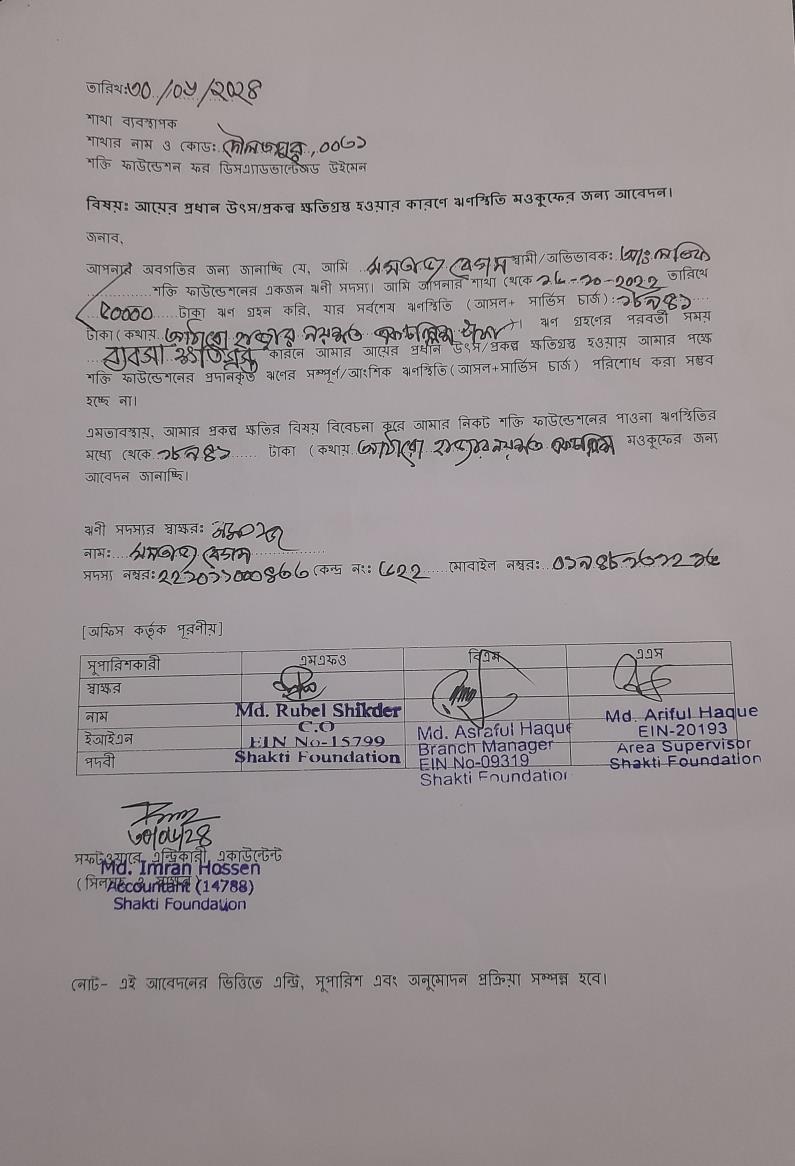 তারিখঃ৩০/০৬/২০২৪
শাখা ব্যবস্থাপক
শাখার নাম ও কোড: দৌলতপুর, ০০৬১
শক্তি ফাউন্ডেশন ফর ডিসএ্যাডভান্টেজড উইমেন
বিষয়ঃ আয়ের প্রধান উৎস/প্রকল্প ক্ষতিগ্রস্ত হওয়ার কারণে ঋণস্থিতি মওকুফের জন্য আবেদন।
জনাব,
আপনার অবগতির জন্য জানাচ্ছি যে, আমি মমতাজ বেগম স্বামী/অভিভাবক: আঃ
শক্তি ফাউন্ডেশনের একজন ঋণী সদস্য। আমি আপনার শাখা থেকে ২৬-১০-২০২২ তারিখে
৫০০০০ টাকা ঋণ গ্রহন করি, যার সর্বশেষ ঋণস্থিতি (আসল+ সার্ভিস চার্জ):১৮৯৪১
টাকা(কথায় আঠারো হাজার নয়শত একচল্লিশ টাকা)। ঋণ গ্রহনের পরবর্তী সময়
ব্যবসা ক্ষতিগ্রস্ত কারনে আমার আয়ের প্রধান উৎস/প্রকল্প ক্ষতিগ্রস্ত হওয়ায় আমার পক্ষে
শক্তি ফাউন্ডেশনের প্রদানকৃত ঋণের সম্পূর্ণ/আংশিক ঋণস্থিতি(আসল+সার্ভিস চার্জ) পরিশোধ করা সম্ভব
হচ্ছে না।
এমতাবস্থায়, আমার প্রকল্প ক্ষতির বিষয় বিবেচনা করে আমার নিকট শক্তি ফাউন্ডেশনের পাওনা ঋণস্থিতির
মধ্যে থেকে ১৮৯৪১ টাকা (কথায় আঠারো হাজার নয়শত একচল্লিশ মওকুফের জন্য
আবেদন জানাচ্ছি।
ঋণী সদস্যর স্বাক্ষর: মমতাজ
নাম: মমতাজ বেগম
সদস্য নম্বর: ২২১০১১০০০৪৬৬ কেন্দ্র নং: ৫২২ মোবাইল নম্বর:
[অফিস কর্তৃক পূরনীয়]
সুপারিশকারী এমএফও বিএম এএস
স্বাক্ষর
নাম Md. Rubel Shikder Md. Asraful Haque Md. Ariful Haque
C.O Branch Manager EIN-20193
ইআইএন EIN No-15799 EIN No-09319 Area Supervisor
পদবী Shakti Foundation Shakti Foundation Shakti Foundation
৩০/০৬/২৪
সফটওয়্যারে এন্ট্রিকারী, একাউন্টেন্ট
Md. Imran Hossen
Accountant (14788)
Shakti Foundation
নোট- এই আবেদনের ভিত্তিতে এন্ট্রি, সুপারিশ এবং অনুমোদন প্রক্রিয়া সম্পন্ন হবে।